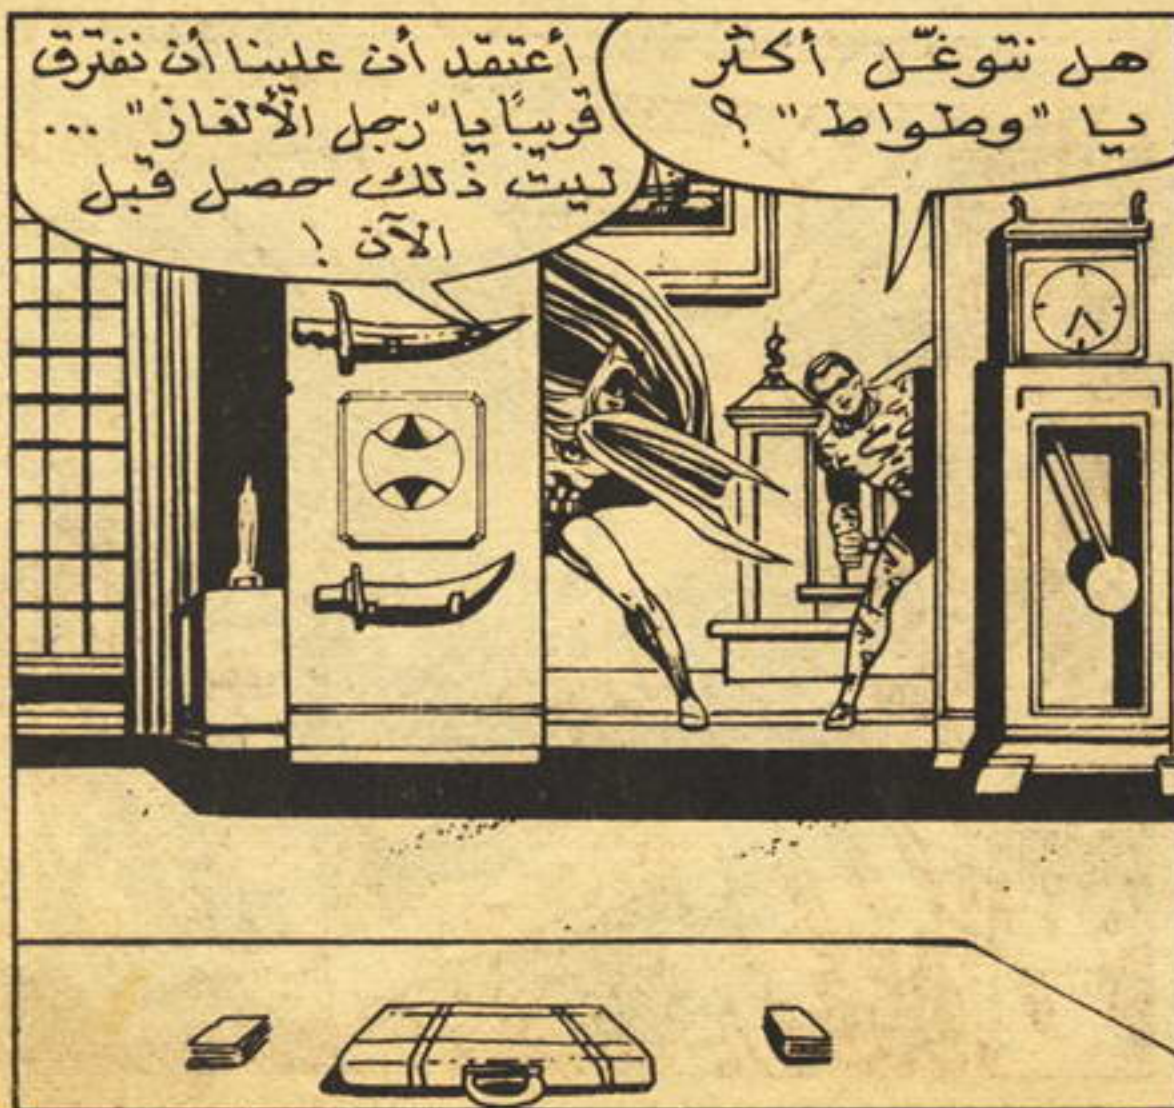 هل نتوغّل أكثر
يا "وطواط" ؟
أعتقد أن علينا أن نفترق
قريبًا يا "رجل الألغاز" ...
ليت ذلك حصل قبل
الآن !